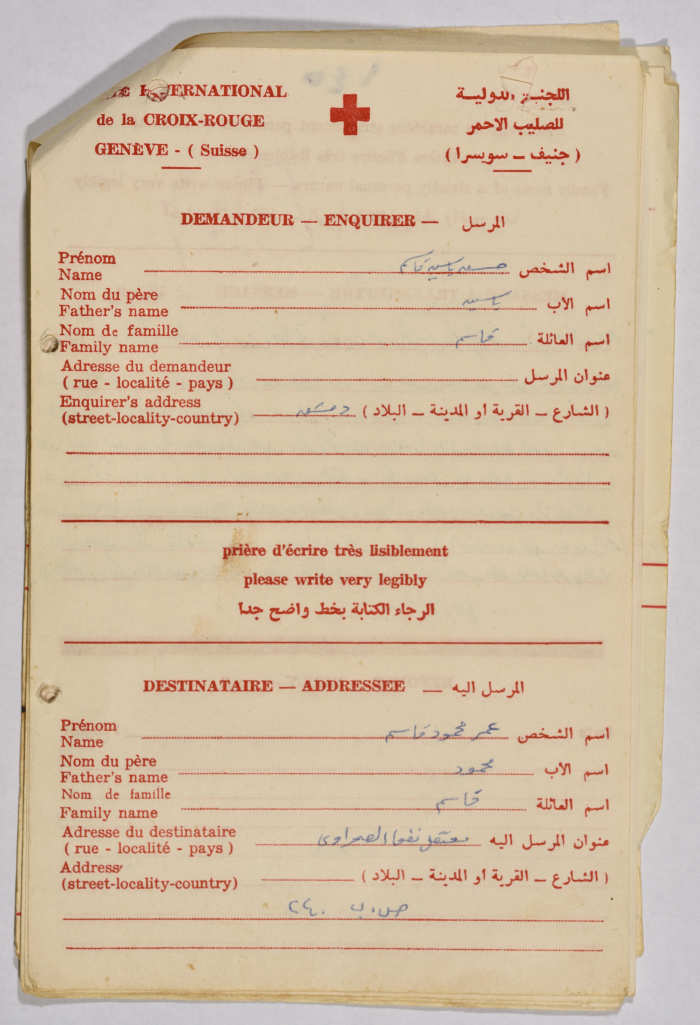 INTERNATIONAL
de la CROIX-ROUGE
GENÈVE - ( Suisse )
اللجنة الدولية
للصليب الاحمر
( جنيف ــ سويسرا )
DEMANDEUR — ENQUIRER — المرسل
Prénom
Name حسن ياسين قاسم اسم الشخص
Nom du père
Father's name ياسين اسم الأب
Nom de famille
Family name قاسم اسم العائلة
Adresse du demandeur
( rue - localité - pays ) عنوان المرسل
Enquirer's address
(street-locality-country) دمشق ( الشارع ــ القرية أو المدينة ــ البلاد )
prière d'écrire très lisiblement
please write very legibly
الرجاء الكتابة بخط واضح جدا
DESTINATAIRE — ADDRESSEE — المرسل اليه
Prénom
Name عمر محمود قاسم اسم الشخص
Nom du père
Father's name محمود اسم الأب
Nom de famille
Family name قاسم اسم العائلة
Adresse du destinataire
( rue - localité - pays ) معتقل نفحا الصحراوي عنوان المرسل اليه
Address
(street-locality-country) ( الشارع ــ القرية أو المدينة ــ البلاد )
ص.ب ٢٤٠